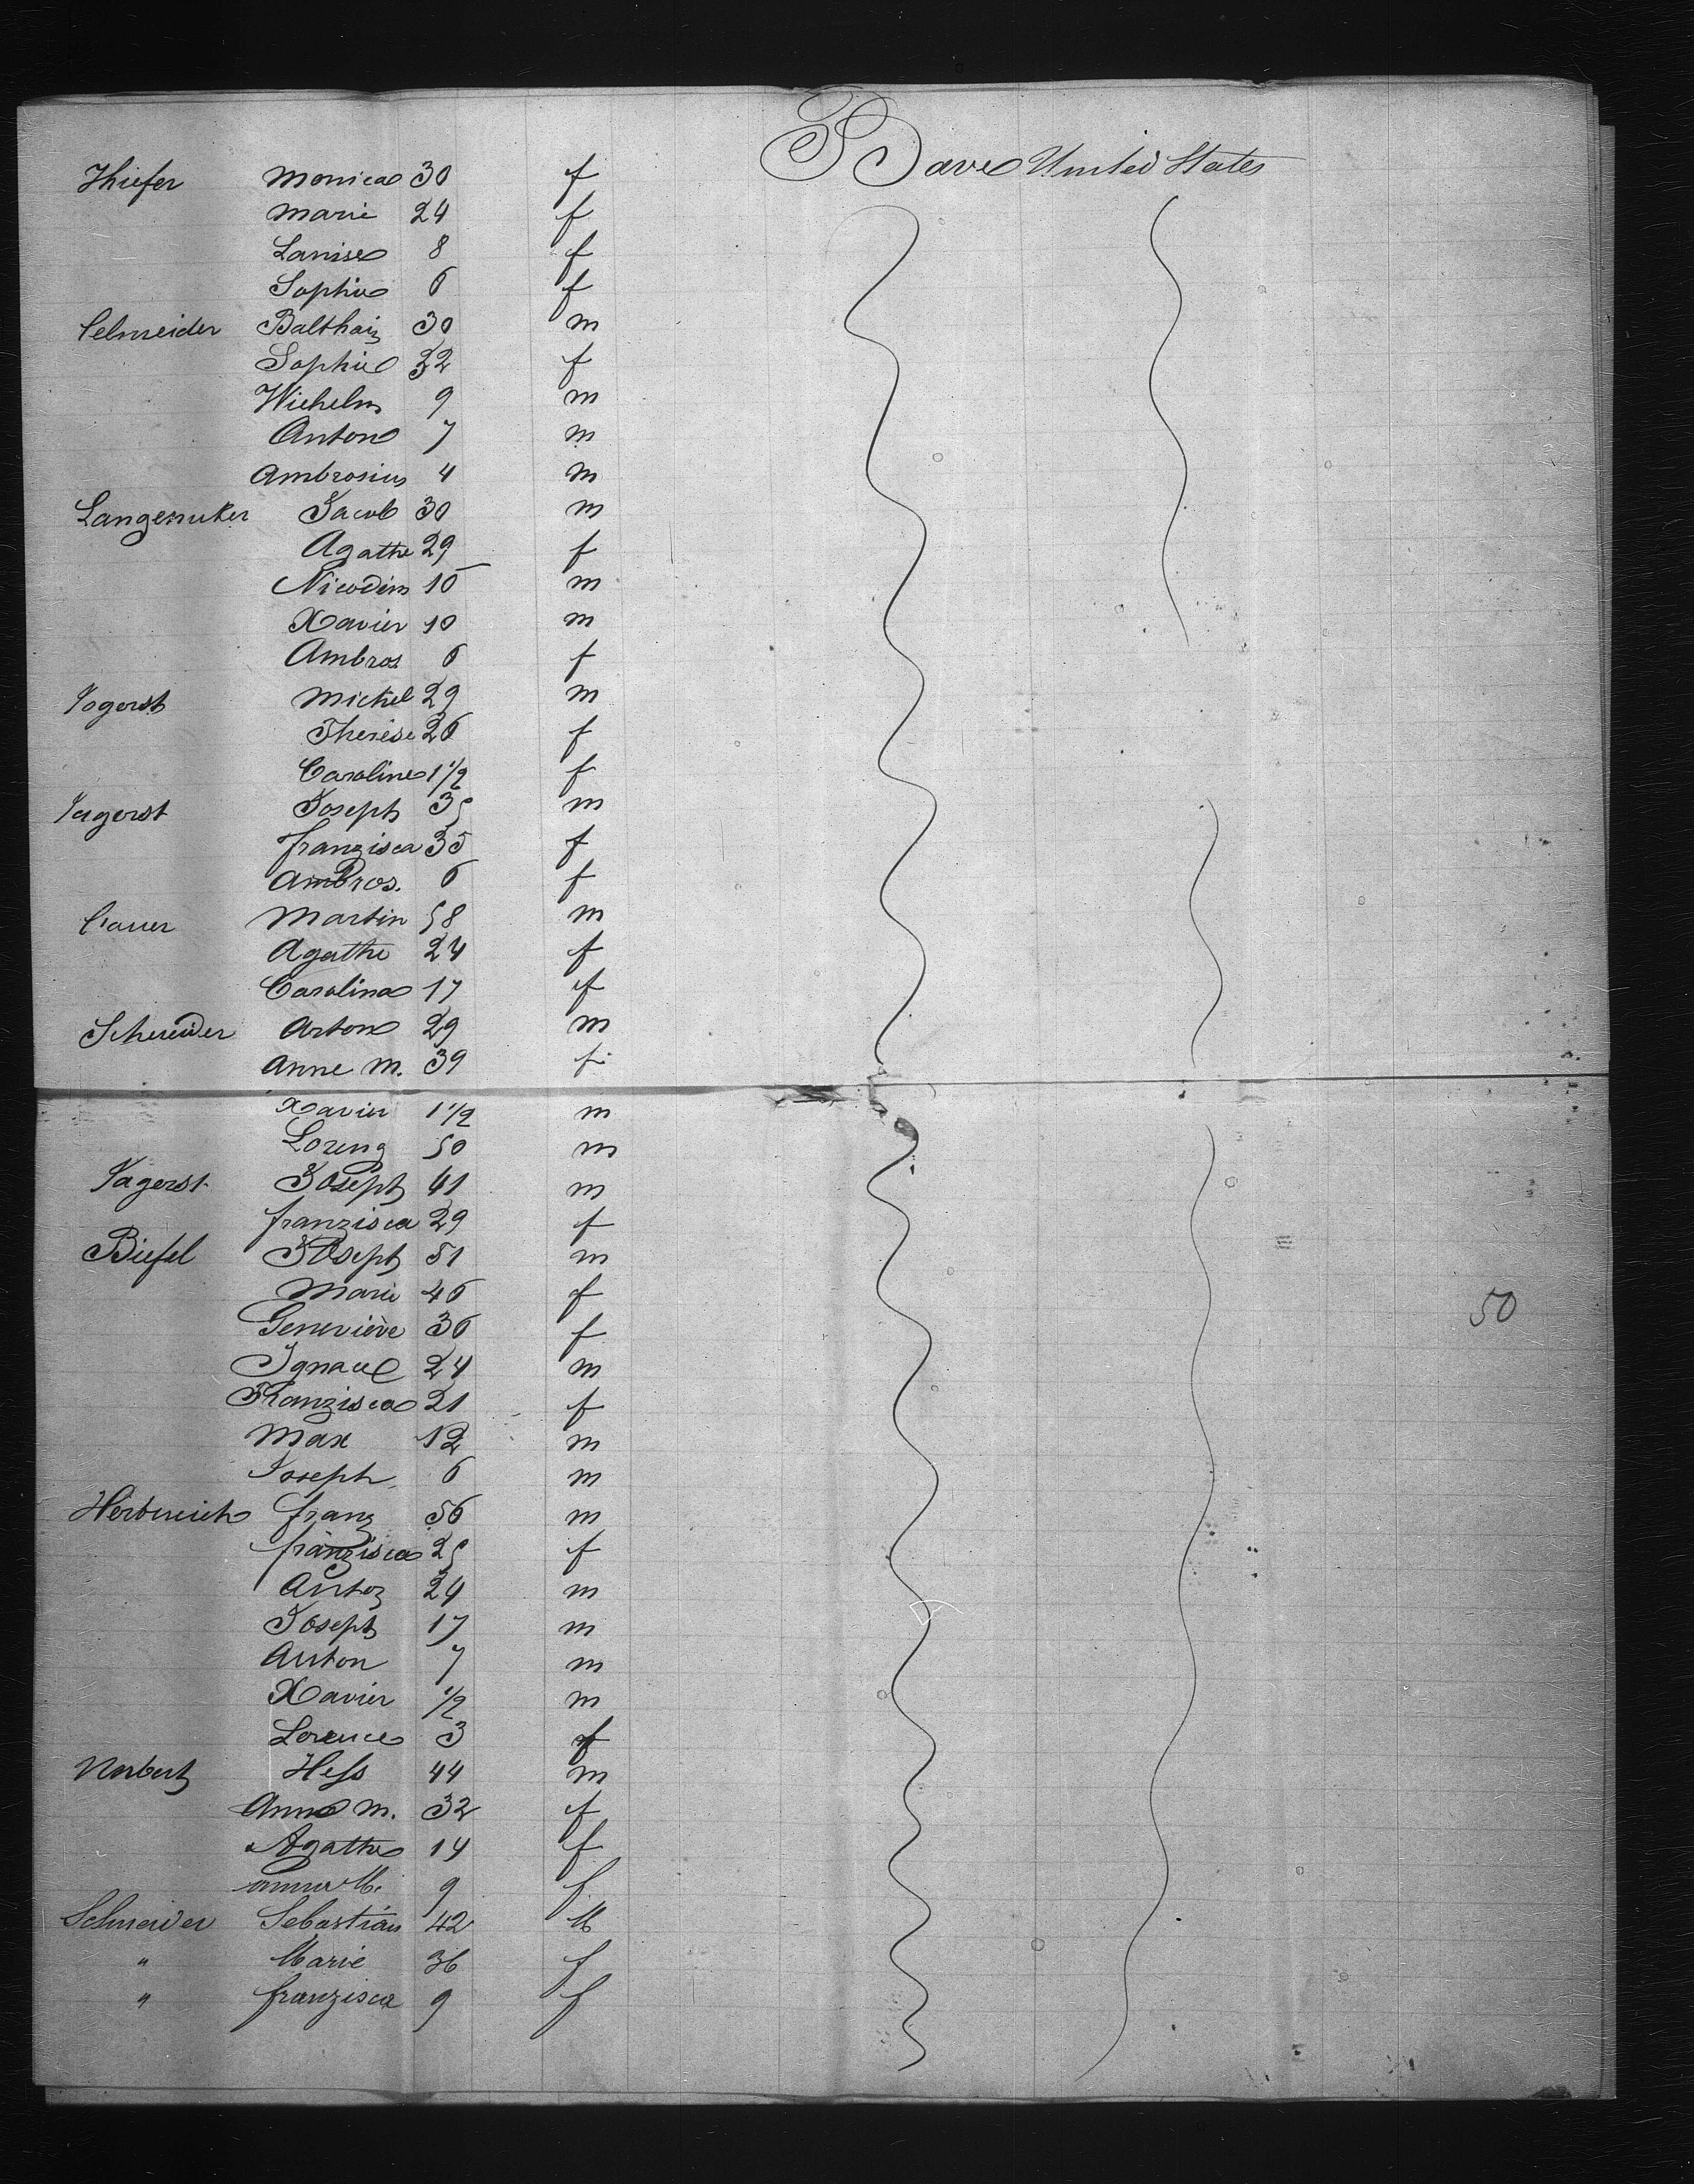 Thiefer Monica 30 f Bave United States
Marie 24 f
Lanise 8 f
Sophie 6 f
Schneider Balthaiz 30 m
Sophie 32 f
Wiehelm 9 m
Anton 7 m
Ambrosius 4 m
Jacob 30 m
Agathe 29 f
Nicodem 10 m
Xavier 10 m
Ambros 6 f
Jogerst Michel 29 m
Therése 26 f
Caroline 1 1/2 f
Jagerst Joseph 35 m
franzisca 35 f
Ambros. 6 f
Martin 58 m
Agathe 24 f
Carolina 17 f
Schneider Anton 29 m
Anne M. 39 f
Xavier 1 1/2 m
Lorenz 50 m
Jagerst Joseph 41 m
franzisca 29 f
Biefel Joseph 51 m
Marie 46 f 50
Geneviève 36 f
Ignace 24 m
Franzisca 21 f
Max 12 m
Joseph 6 m
Herbreich franz 56 m
franzisca 25 f
Anton 24 m
Joseph 17 m
Anton 7 m
Xavier 1/2 m
Lorence 3 f
Norbert Hess 44 m
Anna M. 32 f
Agathe 14 f
anna M. 9 f
Schneider Sebastian 42 M
" Marie 36 f
" franzisca 9 f